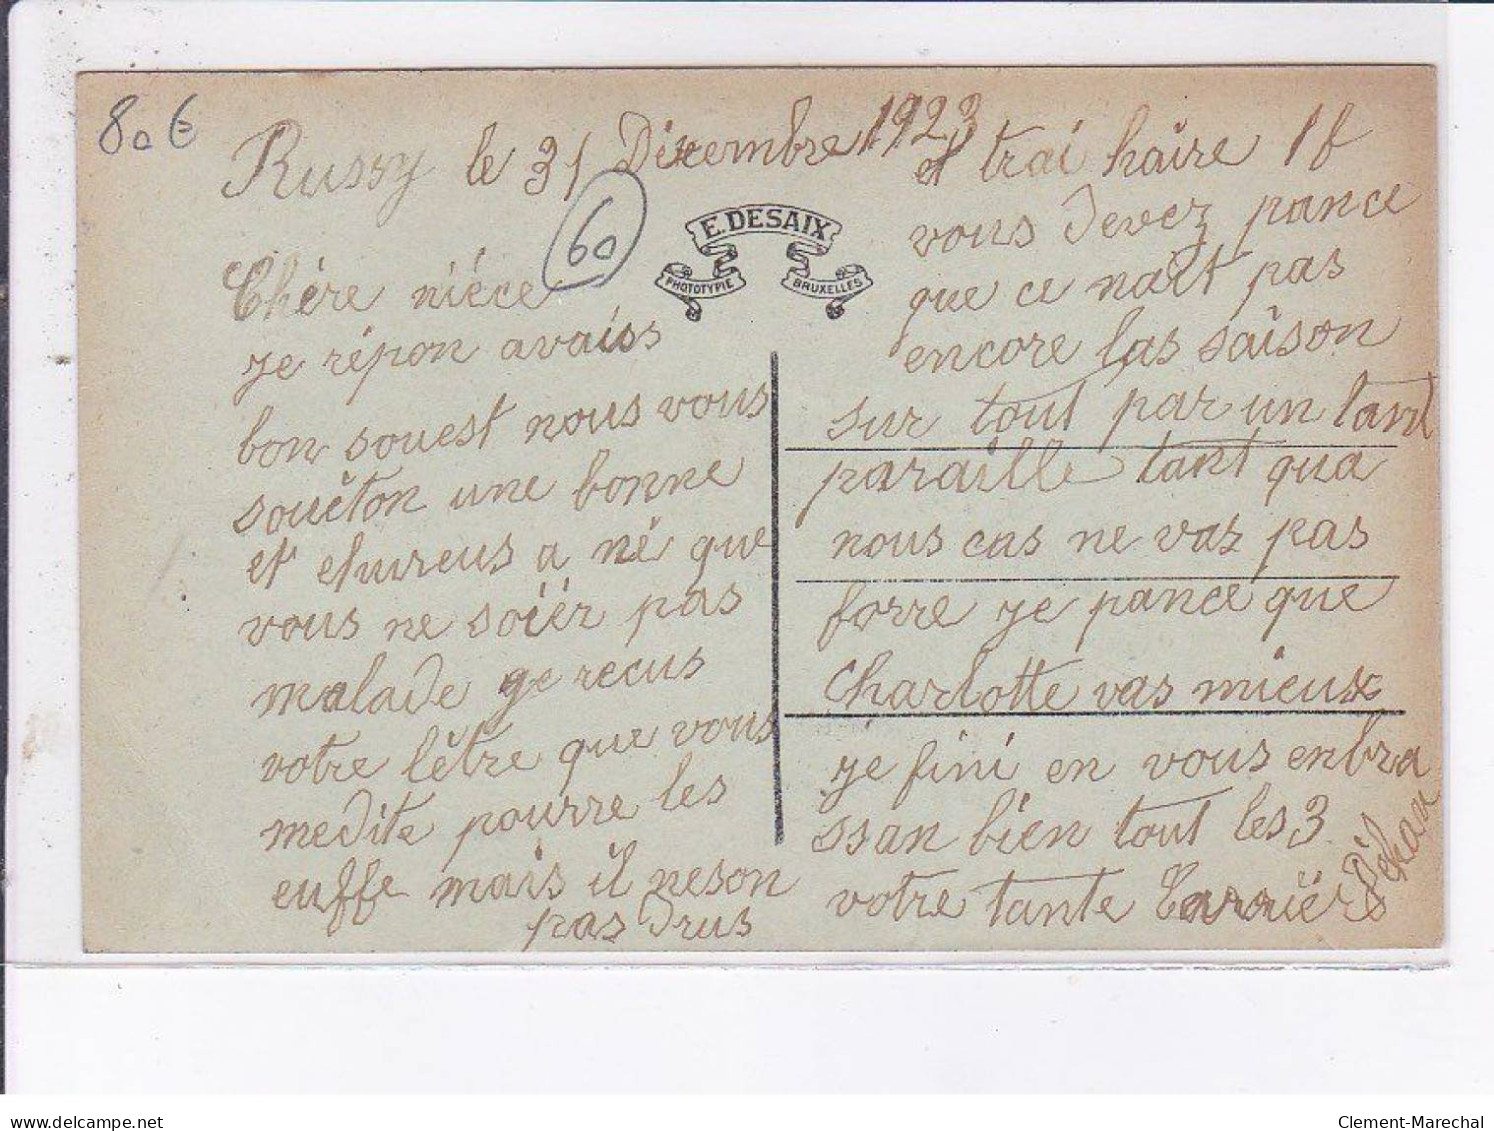 80€
Russy le 31 Décembre 1923
60
E. DESAIX
PHOTOTYPIE BRUXELLES
Chère nièce
je répon avaiss
bon souest nous vous
souêton une bonne
et ehureus a né que
vous ne soiër pas
malade ge recus
votre lêtre que vous
medite pourre les
euffe mais il neson
pas Drus
et trai hâire 1f
vous Devez pance
que ce nait pas
encore las sâison
sur tout par un tant
paraille tant qua
nous cas ne vas pas
forre je pance que
Charlotte vas mieux
je fini en vous enbra
ssan bien tout les 3
votre tante Carriër